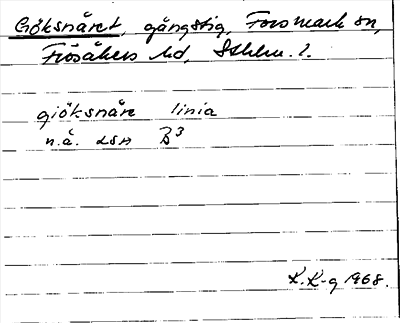 Göksnåret, gångstig, Forsmark sn,
Frösåkers hd, Sthlm. l.
giöksnåre linia
n.å. LSA B3
K.K-g 1968.